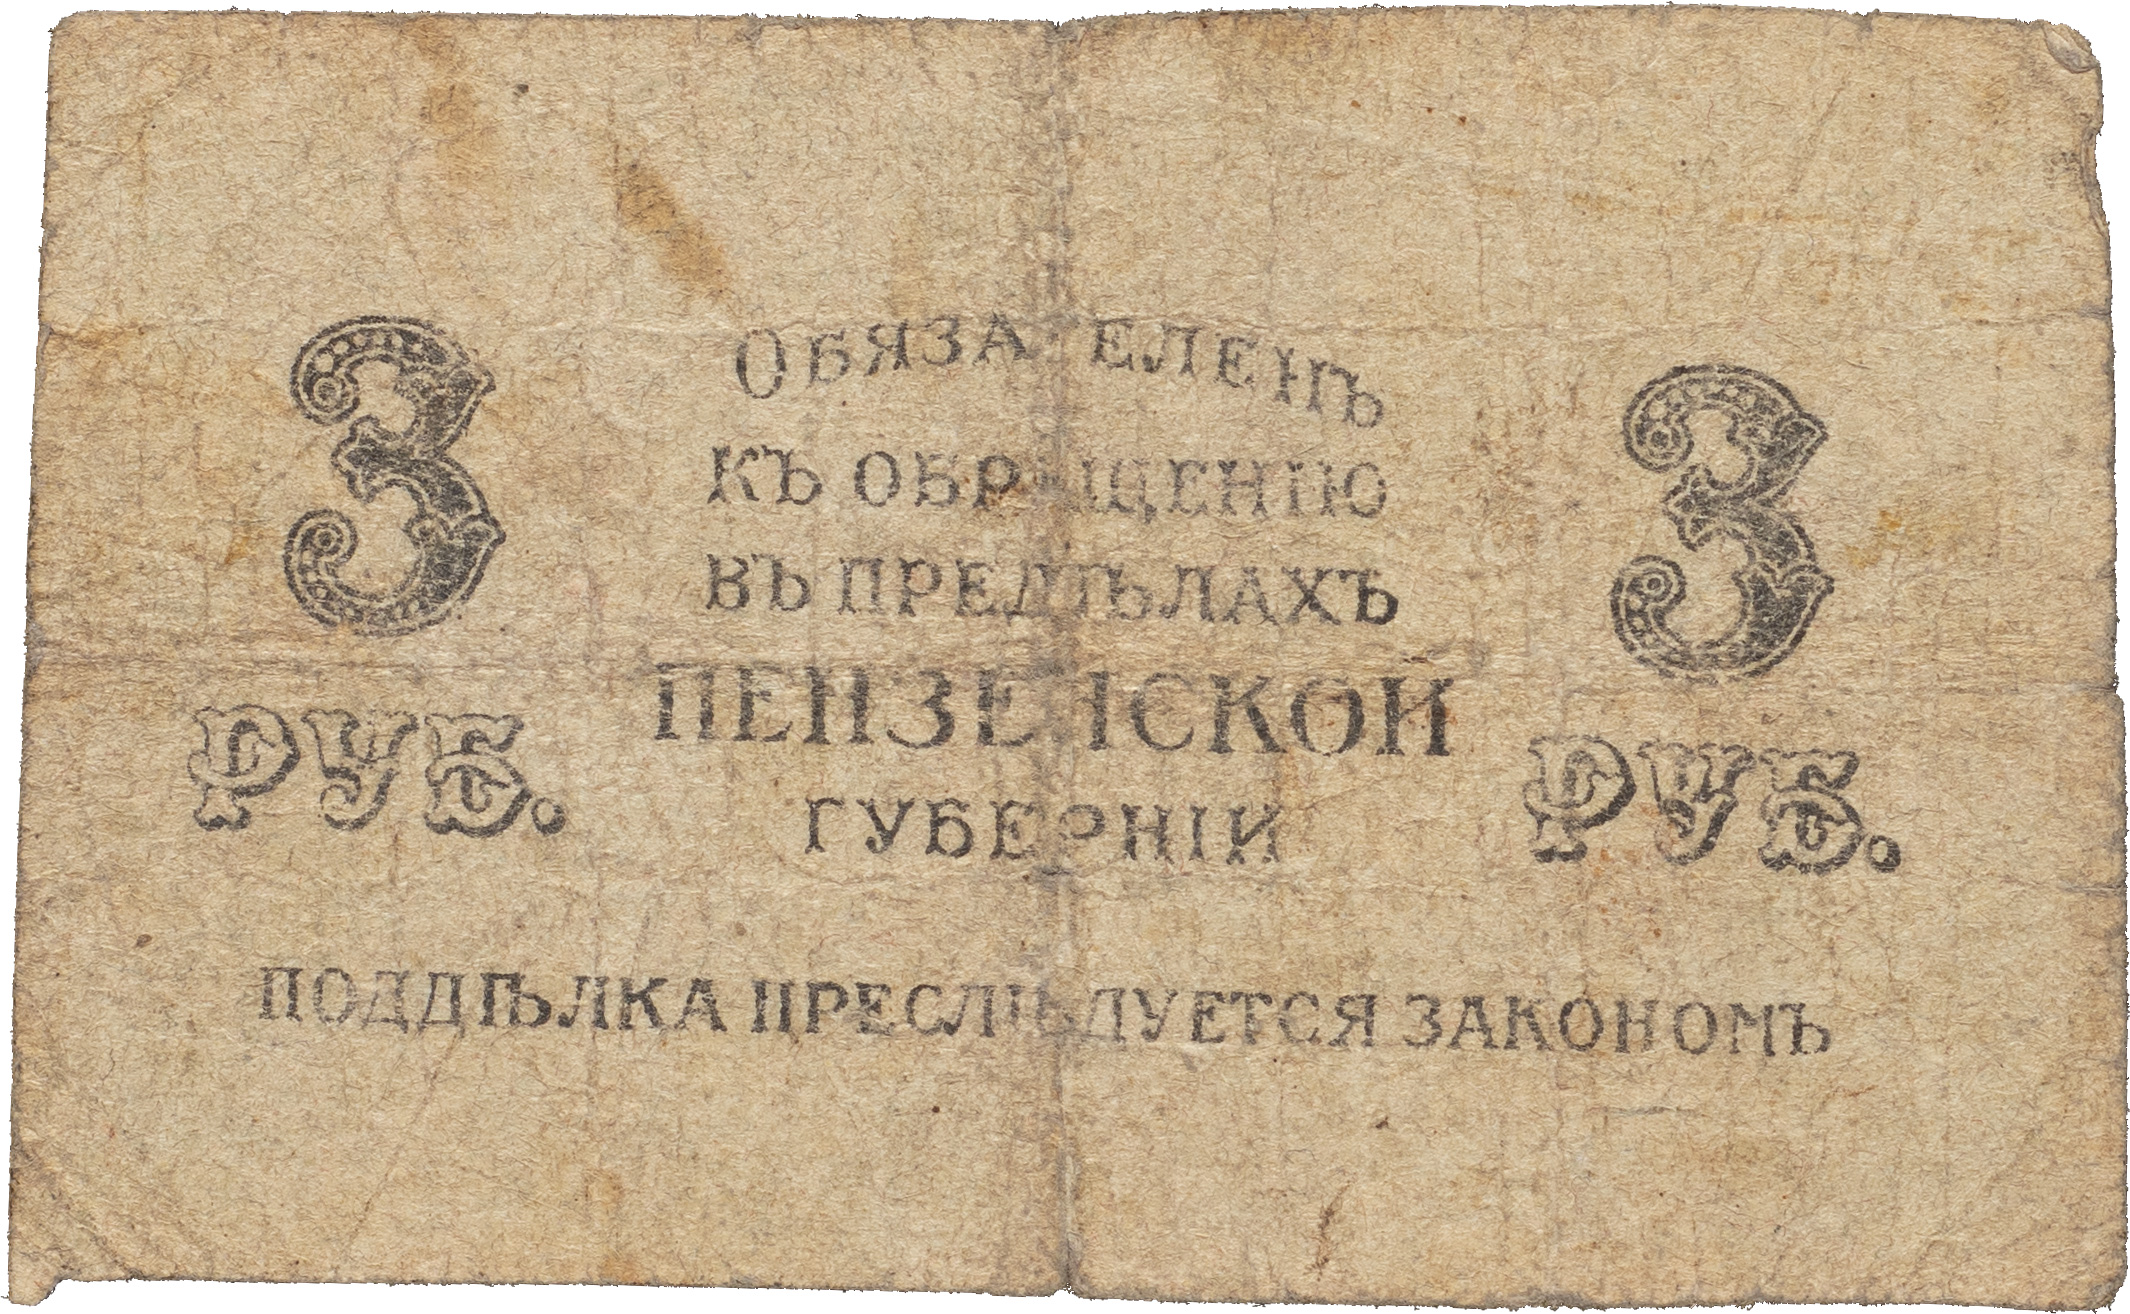 3 РУБ.
Обязателенъ
къ обращенію
въ предѣлахъ
ПЕНЗЕНСКОЙ
ГУБЕРНІИ
3 РУБ.
ПОДДѢЛКА ПРЕСЛѢДУЕТСЯ ЗАКОНОМЪ